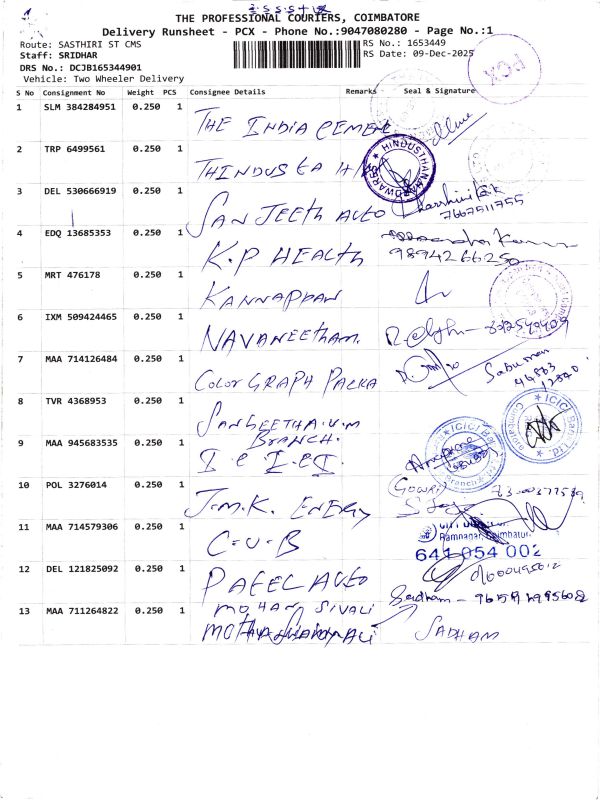 THE PROFESSIONAL COURIERS, COIMBATORE
Delivery Runsheet - PCX - Phone No.:9047080280 - Page No.:1
Route: SASTHIRI ST CMS
RS No.: 1653449
Staff: SRIDHAR
RS Date: 09-Dec-2025
DRS No.: DCJB165344901
Vehicle: Two Wheeler Delivery
PCX
S No Consignment No Weight PCS Consignee Details Remarks Seal & Signature
1 SLM 384284951 0.250 1 THE INDIA CEMENT
2 TRP 6499561 0.250 1 THINDUSTA H/W HINDUSTHAN HARDWARES
3 DEL 530666919 0.250 1 SANJEETH AUTO 7667511755
4 EDQ 13685353 0.250 1 K.P HEALTH 9894266250
5 MRT 476178 0.250 1 KANNAPPAN
6 IXM 509424465 0.250 1 NAVANEETHAM.
7 MAA 714126484 0.250 1 COLOR GRAPH PACKA
8 TVR 4368953 0.250 1 SANGEETHA.V.M
BRANCH.
9 MAA 945683535 0.250 1 I C I C I. ICICI Bank Ltd.
10 POL 3276014 0.250 1 J.M.K. ENERGY GOWRI
11 MAA 714579306 0.250 1 C-U-B
Ramnagar, Coimbatore
641 054 002
12 DEL 121825092 0.250 1 PATEL AUTO
MOHAN SIVALI Sadham -
13 MAA 711264822 0.250 1 SADHAM